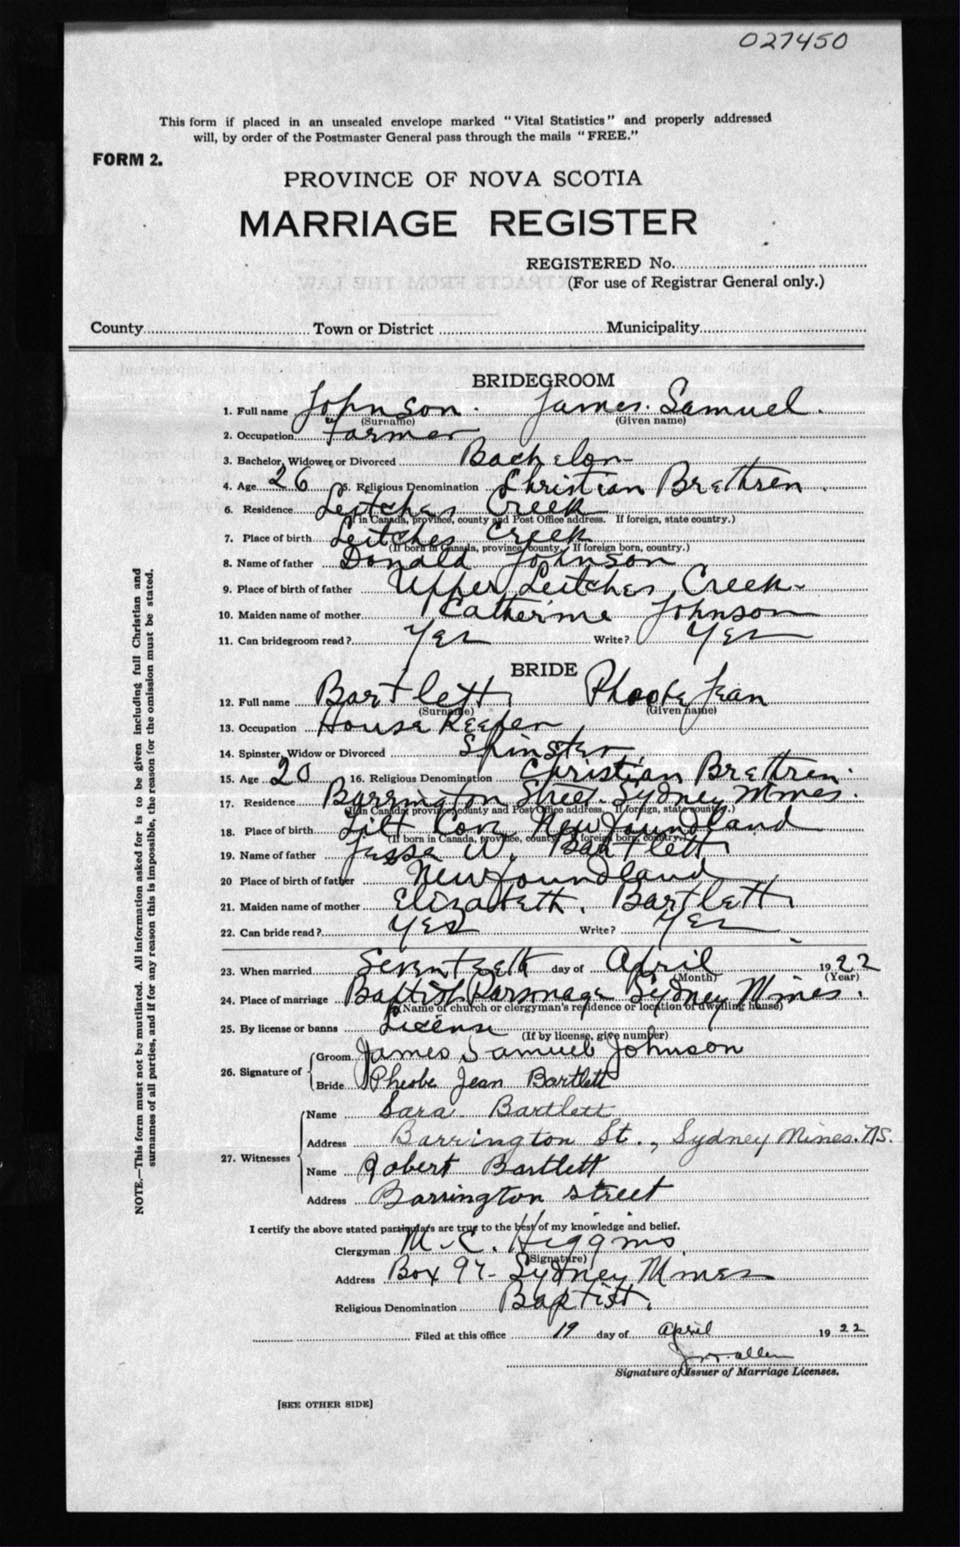 027450
This form if placed in an unsealed envelope marked "Vital Statistics" and properly addressed
will, by order of the Postmaster General pass through the mails "FREE."
FORM 2.
PROVINCE OF NOVA SCOTIA
MARRIAGE REGISTER
REGISTERED No.
(For use of Registrar General only.)
County Town or District Municipality
BRIDEGROOM
1. Full name Johnson. James. Samuel.
(Surname) (Given name)
2. Occupation Farmer
3. Bachelor, Widower or Divorced Bachelor
4. Age 26 5. Religious Denomination Christian Brethren
6. Residence Leitches Creek
(If in Canada, province, county and Post Office address. If foreign, state country.)
7. Place of birth Leitches Creek
(If born in Canada, province, county. If foreign born, country.)
8. Name of father Donald Johnson
9. Place of birth of father Upper Leitches Creek.
10. Maiden name of mother Catherine Johnson
11. Can bridegroom read? Yes Write? Yes
BRIDE
12. Full name Bartlett Phoebe Jean
(Surname) (Given name)
13. Occupation House Keeper
14. Spinster, Widow or Divorced Spinster
15. Age 20 16. Religious Denomination Christian Brethren.
17. Residence Barrington Street. Sydney Mines.
(If in Canada, province, county and Post Office address. If foreign, state country.)
18. Place of birth Tilt Cove Newfoundland
(If born in Canada, province, county. If foreign born, country.)
19. Name of father Jesse W. Bartlett
20 Place of birth of father Newfoundland
21. Maiden name of mother Elizabeth. Bartlett
22. Can bride read? Yes Write? Yes
23. When married Seventeeth day of April 1922
(Month) (Year)
24. Place of marriage Baptist Parsonage Sydney Mines.
(Name of church or clergyman's residence or location of dwelling house)
25. By license or banns License
(If by license, give number)
26. Signature of
Groom James Samuel Johnson
Bride Pheobe Jean Bartlett
27. Witnesses
Name Sara Bartlett
Address Barrington St., Sydney Mines. N.S.
Name Robert Bartlett
Address Barrington street
I certify the above stated particulars are true to the best of my knowledge and belief.
Clergyman M. C. Higgins.
(Signature)
Address Box 97- Sydney Mines
Religious Denomination Baptist.
Filed at this office 19 day of April 1922
Allen
Signature of Issuer of Marriage Licenses.
[SEE OTHER SIDE]
NOTE.—This form must not be mutilated. All information asked for is to be given including full Christian and
surnames of all parties, and if for any reason this is impossible, the reason for the omission must be stated.